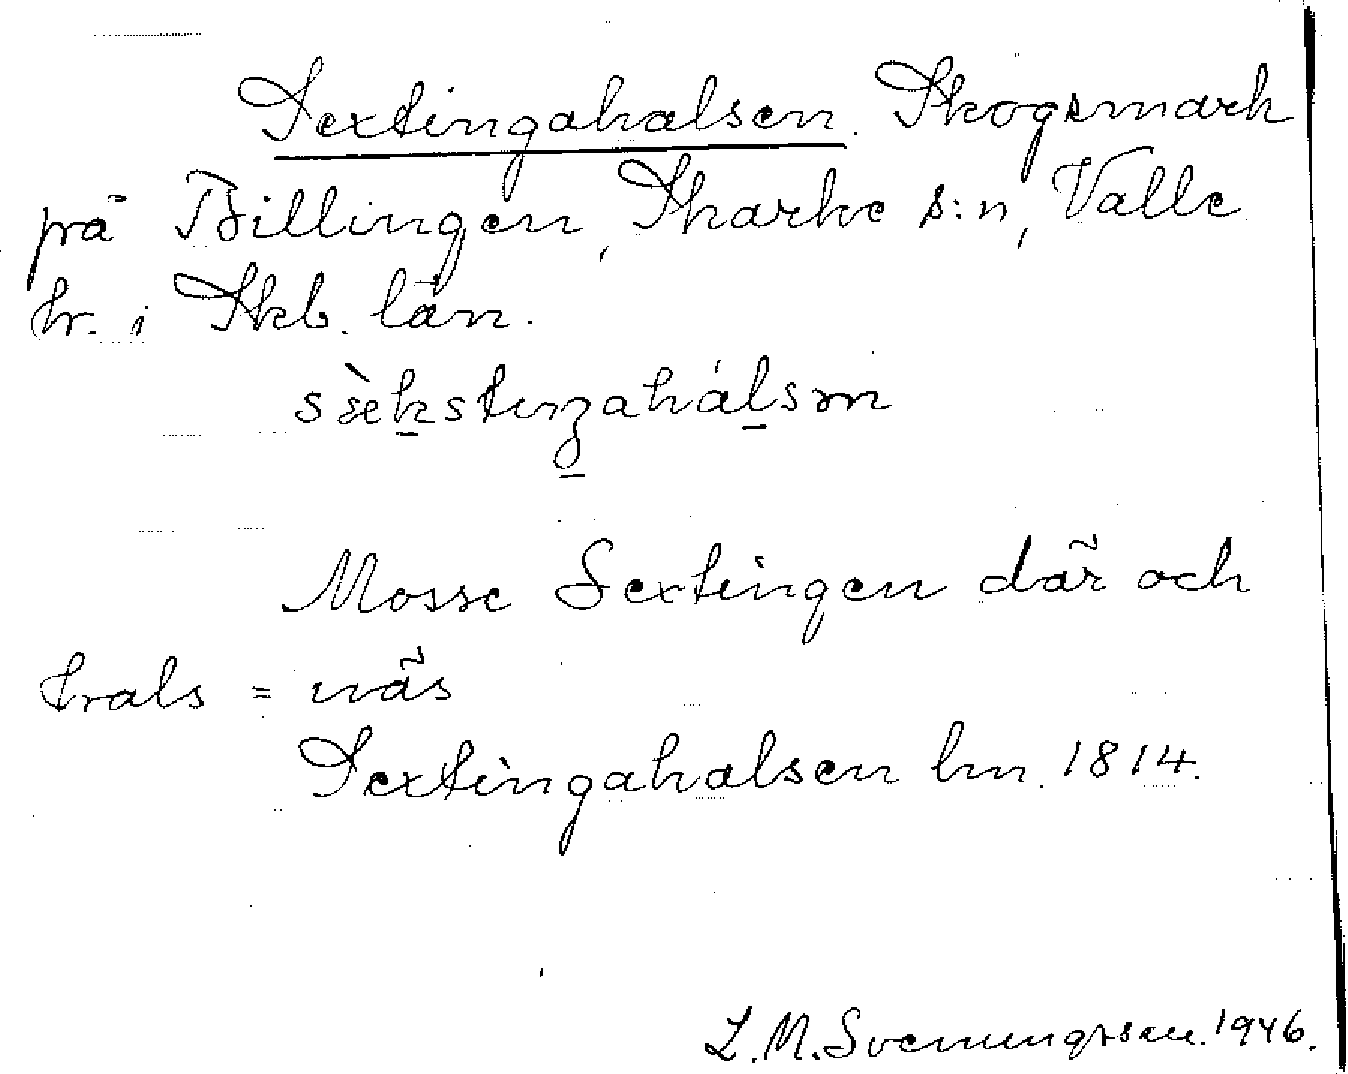 Sextingahalsen. Skogsmark
på Billingen, Skarke s:n, Valle
hr. i Skb. län.
Mosse Sextingen där och
hals = näs
Sextingahalsen lm. 1814.
L.M. Svenungsson. 1946.